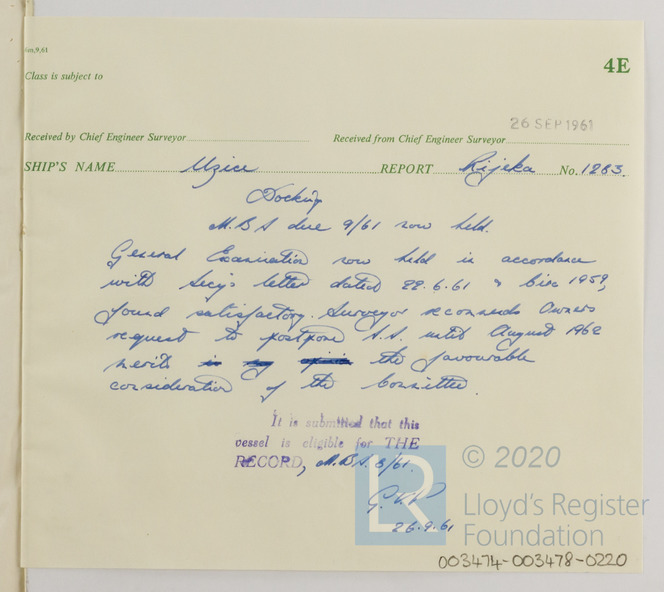 6m,9,61
4E
Class is subject to
26 SEP 1961
Received by Chief Engineer Surveyor
Received from Chief Engineer Surveyor
SHIP'S NAME Uzice REPORT Rijeka No. 1283.
Docking
M.B.S due 9/61 now held.
General Examination now held in accordance
with Secy's letter dated 22.6.61 & Circ 1959,
found satisfactory. Surveyor recommends Owners
request to postpone S.S. until August 1962
merits in my opinion the favourable
consideration of the Committee.
It is submitted that this
vessel is eligible for THE
RECORD, M.B.S. 8/61.
26.9.61
LR
© 2020
Lloyd's Register
Foundation
003474-003478-0220